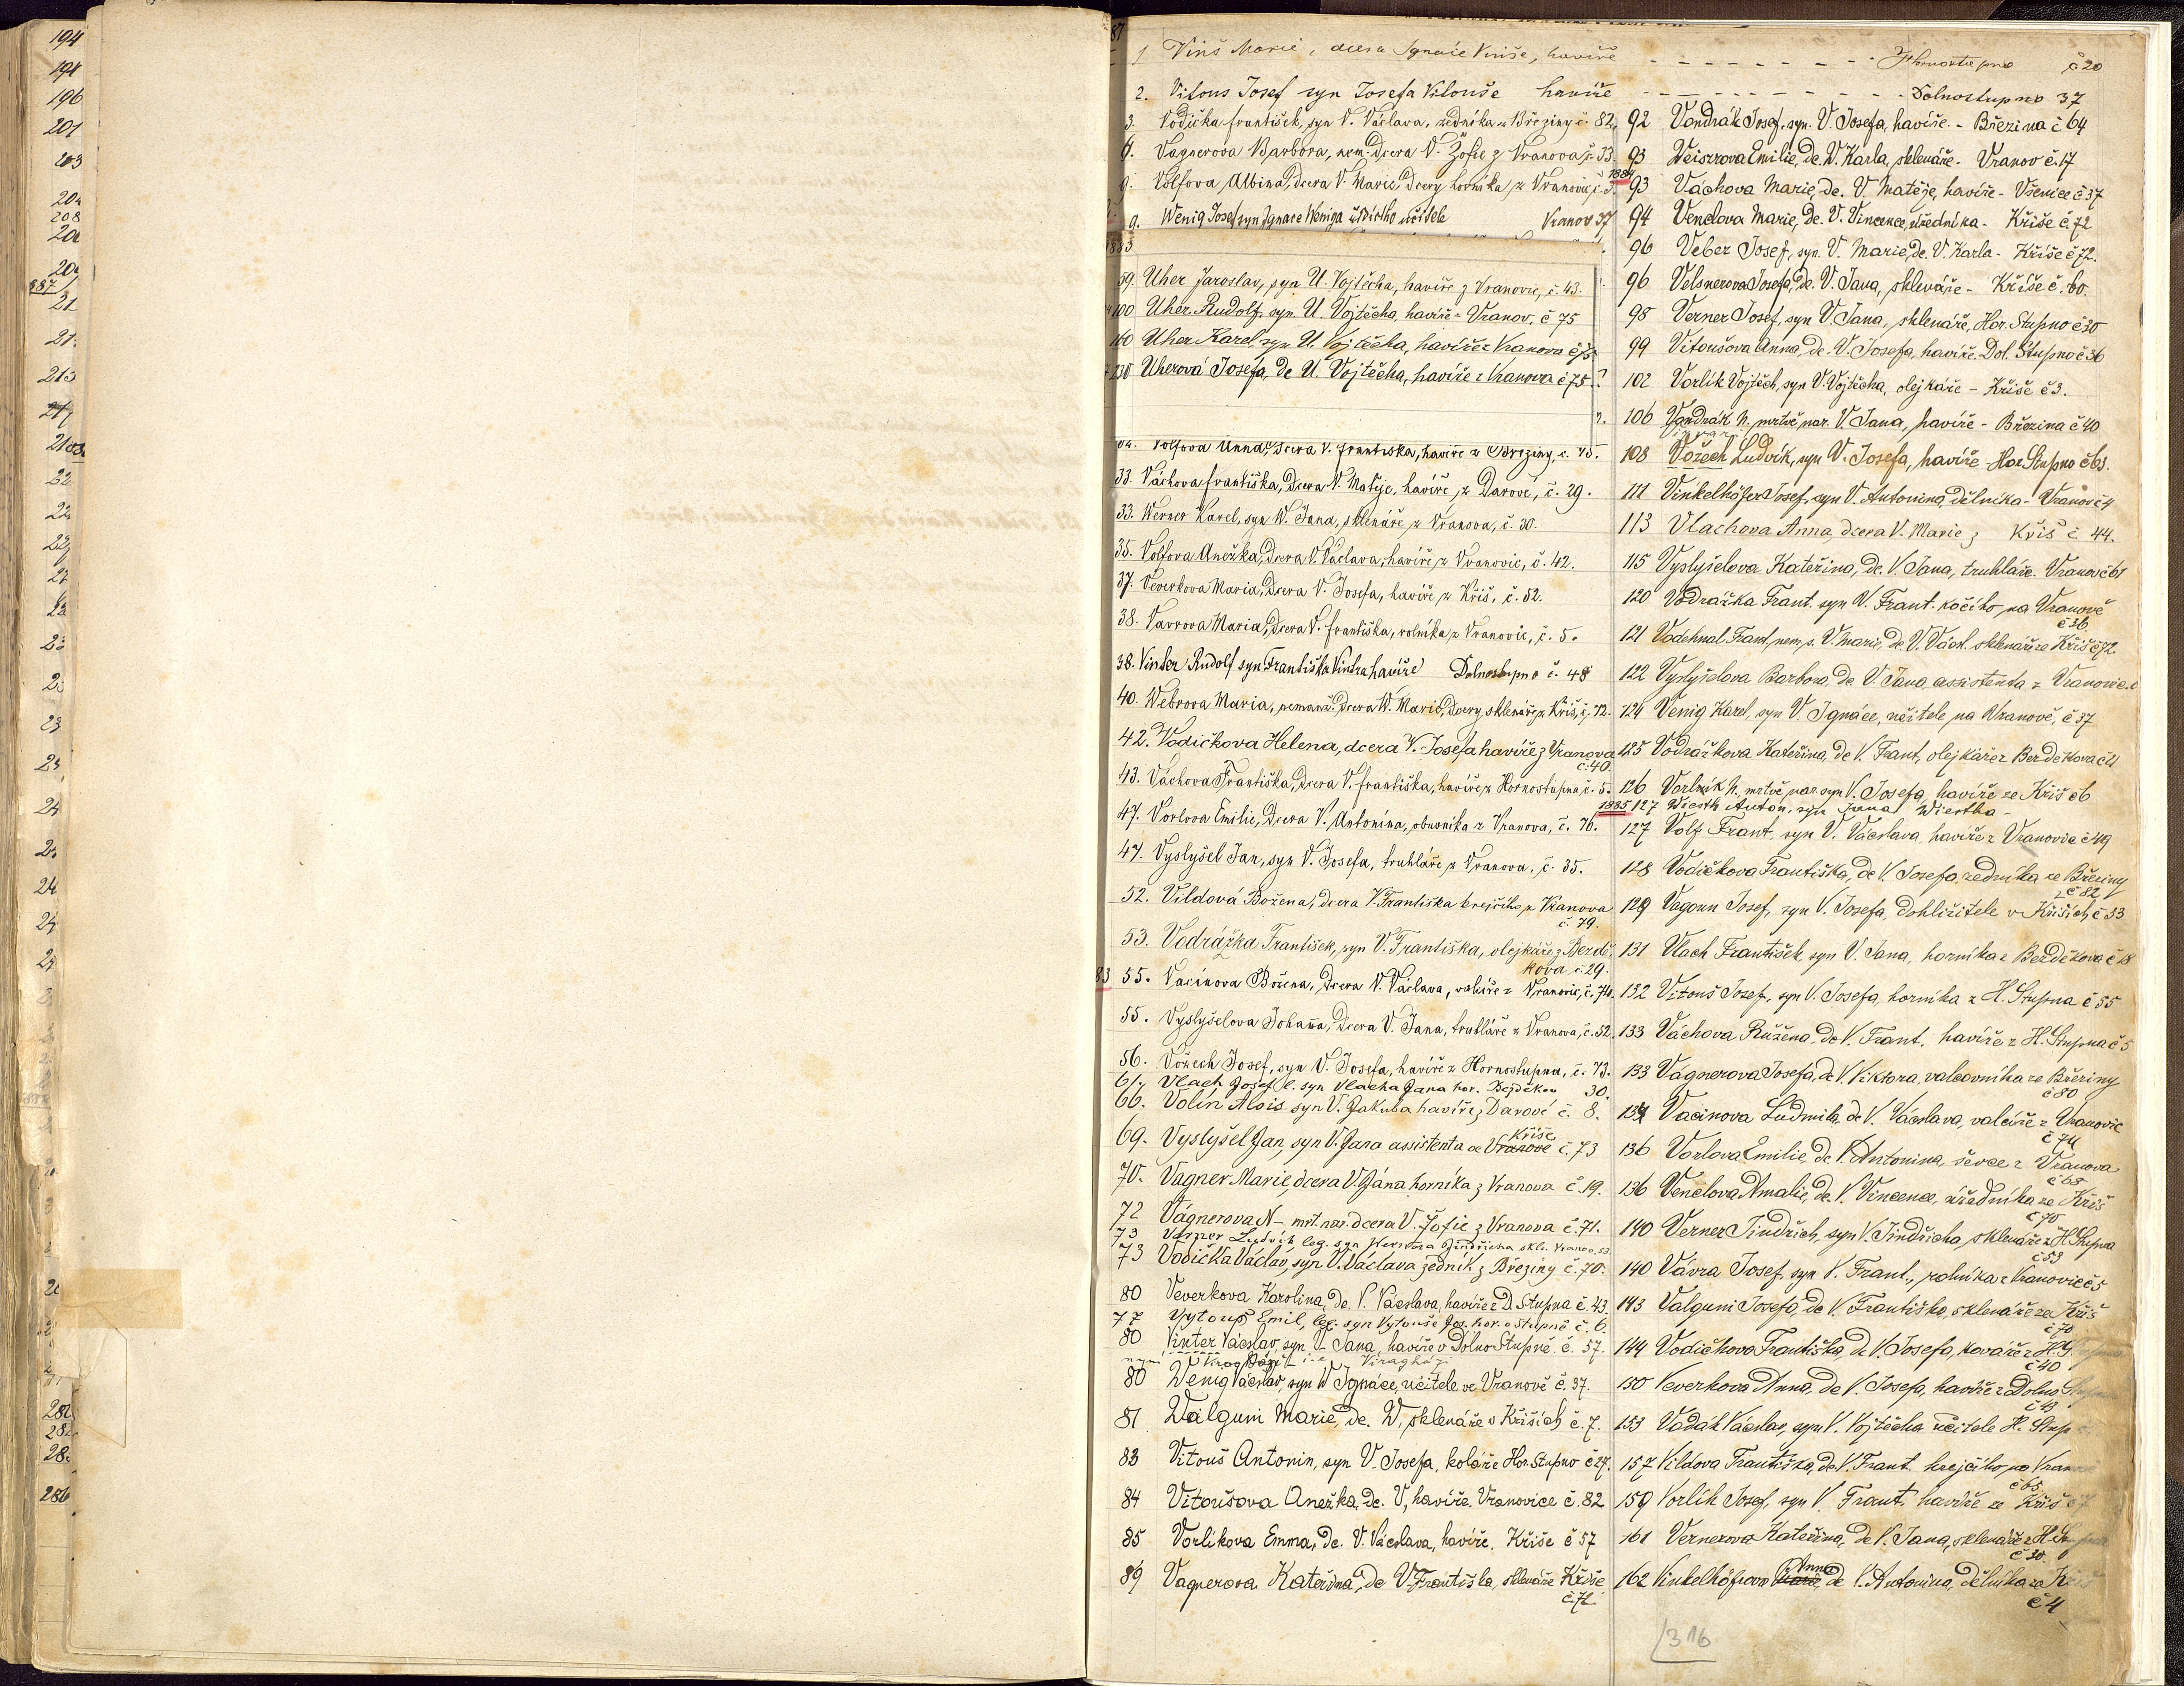 194
196
201
203
208
213
286
1 Viriš Marie, dcera Ignáce Viriše, havíře - - - - - - Hornostupno č 20
2. Vitous Josef syn Josefa Vitouše havíře - - - - - - Dolnostupno 37
3. Vodička františek, syn V. Václava, zedníka z Březiny č. 82.
Vagnerova Barbora, nem. Dcera V. Žofie z Vranova č. 33.
9. Volfova Albina, dcera V. Marie, Dcery horníka z Vranovic, č.
9. Wenig Josef syn Ignace Weniga učitele Vranov 37
1883
59. Uher Jaroslav, syn U. Vojtěcha, havíře z Vranovic, č. 43.
100 Uher Rudolf, syn U. Vojtěcha, havíře - Vranov, č 75
160 Uher Karel, syn U. Vojtěcha, havíře z Vranova č 75
230 Uherová Josefa, De U. Vojtěcha, havíře z Vranova č 75
Volfova Anna, Dcera V. františka, havíře z Březiny, č. 45.
33. Váchova františka, Dcera V. Matěje, havíře z Darové, č. 29.
33. Werner Karel, syn W. Jana, sklenáře z Vranova, č. 30.
35. Volfova Anežka, Dcera V. Václava, havíře z Vranovic, č. 42.
37. Veverkova Maria, Dcera V. Josefa, havíře z Kříš, č. 52.
38. Vavrova Maria, Dcera V. františka, rolníka z Vranovic, č. 5.
38. Vinter Rudolf syn Františka Vintra havíře Dolnostupno č. 48
40. Webrova Maria, nemanž. Dcera W. Marie, Dcery sklenáře z Kříš, č. 72.
42. Vodičkova Helena, dcera V. Josefa havíře z Vranova
č. 40.
43. Váchova Františka, Dcera V. františka, havíře z Hornostupna č. 5.
47. Vorlova Emilie, Dcera V. Antonína, obuvníka z Vranova, č. 76.
47. Vyslyšel Jan, syn V. Josefa, truhláře z Vranova, č. 35.
52. Vildová Božena, dcera V. Františka krejčího z Vranova
č. 79.
53. Vodrážka František, syn V. Františka, olejkáře z Bezdě-
kova č. 29.
83 55. Vacinova Božena, Dcera V. Václava, valcíře z Vranovic, č. 74.
55. Vyslyšelova Johana, Dcera V. Jana, truhláře z Vranova, č. 52.
56. Vožech Josef, syn V. Josefa, havíře z Hornostupna, č. 73.
61. Vlach Josef l. syn Vlacha Jana hor. Bezděkov 30.
66. Volín Alois syn V. Jakuba havíře z Darové č. 8.
Kříše
69. Vyslyšel Jan, syn V. Jana assistenta ve Vranově č. 73
70. Vagner Marie, dcera V. Jána horníka z Vranova č. 19.
72 Vágnerova N - mrt. nar. dcera V. Žofie z Vranova č. 71.
73 Verner Ludvík leg. syn Vernera Jindřicha skl. Vranov. 53
73 Vodička Václav, syn V. Václava zedník z Březiny č. 70.
80 Veverkova Karolina, De. V. Václava, havíře z D. Stupna č. 43.
77 Vytouš Emil, leg. syn Vytouše Jos. hor. v Stupně č. 6.
80 Vinter Václav, syn V. Jana, havíře v Dolno Stupně č. 57.
80 Wenig Václav, syn W Ignáce, učitele ve Vranově č. 37.
81 Walguni Marie, De. W, sklenáře v Kříších č. 7.
83 Vitouš Antonin, syn V. Josefa, koláře Hor. Stupno č 27.
84 Vitoušova Anežka, De. V, havíře Vranovice č. 82
85 Vorlíkova Emma, De. V. Václava, havíře. Kříše č 57
89 Vagnerova Kateřina, De V. Františka, sklenáře Kříše
č. 72
92 Vondrák Josef, syn. V. Josefa, havíře. - Březina č 64
93 Weisrova Emilie, De. W. Karla, sklenáře - Vranov č. 17
1884
93 Váchova Marie, De. V. Matěje, havíře - Všenice č 37
94 Venclova Marie, De. V. Vincence, úředníka - Kříše č. 72
96 Veber Josef, syn. V. Marie, De. V. Karla - Kříše č 72.
96 Velsnerova Josefa, De. V. Jana, sklenáře - Kříše č. 60.
98 Verner Josef, syn V. Jana, sklenáře, Hor. Stupno č 30
99 Vitoušova Anna, De. V. Josefa, havíře. Dol. Stupno č 36
102 Vorlík Vojtěch, syn V. Vojtěcha, olejkáře - Kříše č 3.
106 Vondrák N. mrtvě nar. V. Jana, havíře - Březina č 40
108 Vožech Ludvík, syn V. Josefa, havíře - Hor. Stupno č 63.
111 Vinkelhöfer Josef, syn V. Antonina, Dělníka - Vranov č 4
113 Vlachova Anna, dcera V. Marie z Kříš č 44.
115 Vyslyšelova Kateřina, De. V. Jana, truhláře. Vranov č 61
120 Vodrážka Frant. syn V. Frant. kočího na Vranově
č 36
121 Vodehnal Frant, nem. s. V. Marie, De. V. Václ. sklenáře z Kříš č 72.
122 Vyslyšelova Barbora, De V. Jana, assistenta z Vranovic.
124 Venig Karel, syn V. Ignáce, učitele na Vranově, č 37
125 Vodrážkova Kateřina, De V. Frant, olejkáře z Bezděkova č 4
126 Vorlník N. mrtvě nar. syn V. Josefa, havíře ze Kříš č 6
1885 127 Wiestk Anton, syn Jana Wiestka -
127 Volf Frant. syn V. Václava havíře z Vranovic č 49
128 Vodičkova Františka, De V. Josefa, zedníka ze Březiny
č 82
129 Vagoun Josef, syn V. Josefa, Dohlížitele v Kříších, č 53
131 Vlach František, syn V. Jana, horníka z Bezděkova č 18
132 Vitouš Josef, syn V. Josefa, horníka z H. Stupna č 55
133 Váchova Růžena, De V. Frant. havíře z H. Stupna č 5
133 Vágnerova Josefa, De V. Viktora, valcovníka ze Březiny
č 80
134 Vacinova Ludmila, De V. Václava, valcíře z Vranovic
č 74
136 Vorlova Emilie, De V. Antonina, ševce z Vranova
č 68
136 Venclova Amalie, De. V. Vincence, úředníka ze Kříš
č 70
140 Verner Jindřich, syn V. Jindřicha, sklenáře z H. Stupna
č 53
140 Vávra Josef, syn V. Frant., rolníka z Vranovic č 5
143 Valguni Josefa, De V. Františka, sklenáře ze Kříš
č 70
144 Vodičkova Františka, De V. Josefa, kováře z H.
č 40
150 Veverkova Anna, De V. Josefa, havíře z Dolno
č 43
153 Vodák Václav, syn V. Vojtěcha učitele H. Stup
157 Vildova Františka, De V. Frant. krejčího, na Vran
č 65
159 Vorlík Josef, syn V. Frant. havíře ze Kříš č 7
161 Vernerova Kateřina, De V. Jana, sklenáře z H.
č 30.
Anna
162 Vinkelhöfrova De V. Antonina, Dělníka ze
č 4
316